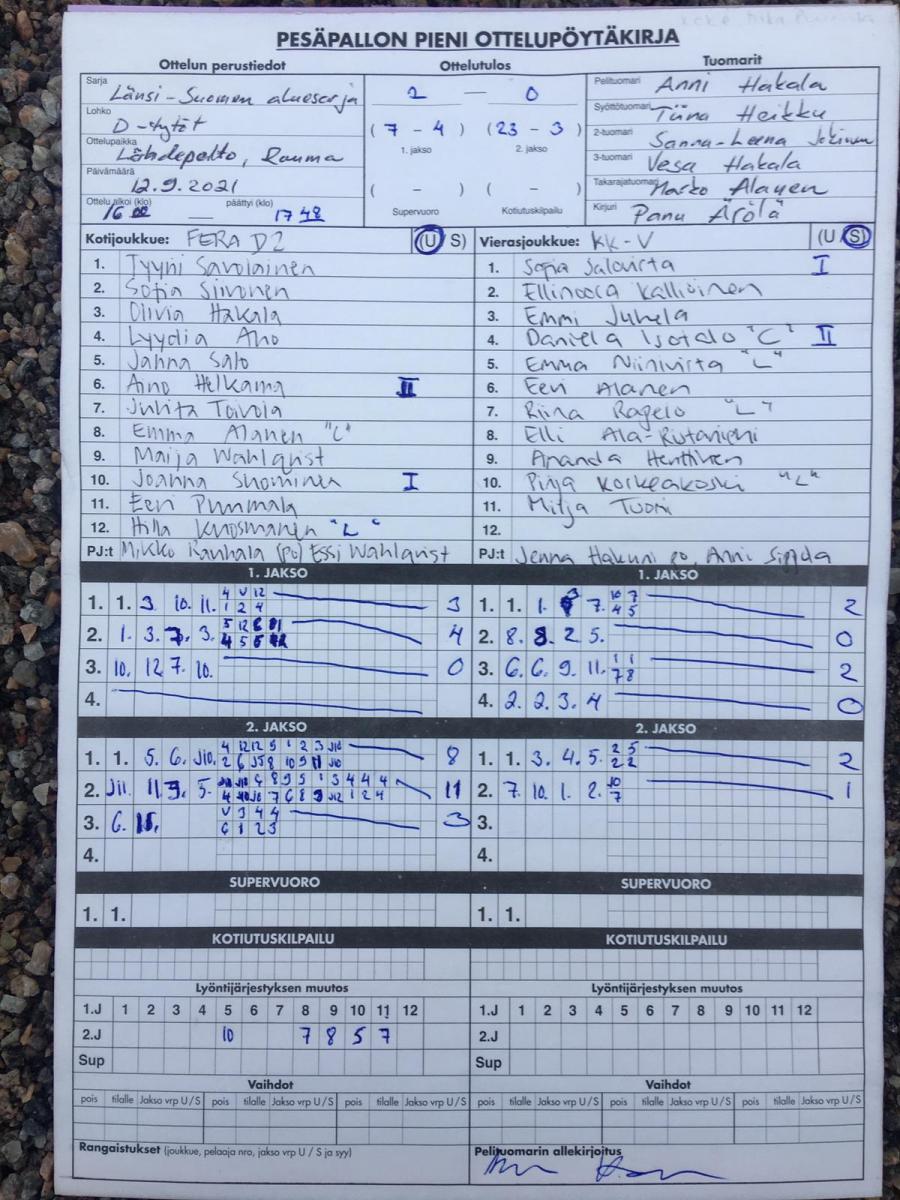 PESÄPALLON PIENI OTTELUPÖYTÄKIRJA
Ottelun perustiedot
Ottelutulos
Tuomarit
Sarja Länsi-Suomen aluesarja
Lohko D-tytöt
Ottelupaikka Lähdepelto, Rauma
Päivämäärä 12.9.2021
Ottelu alkoi (klo) päättyi (klo)
16 00 — 17 48
2 — 0
(7 - 4) (23 - 3)
1. jakso 2. jakso
( - ) ( - )
Supervuoro Kotiutuskilpailu
Pelituomari Anni Hakala
Syöttötuomari Tiina Heikku
2-tuomari Sanna-Leena Jokinen
3-tuomari Vesa Hakala
Takarajatuomari Marko Alanen
Kirjuri Panu Ärölä
Kotijoukkue: FERA D2 (U S)
1. Tyyni Savolainen
2. Sofia Siivonen
3. Olivia Hakala
4. Lyydia Aho
5. Janna Salo
6. Aino Helkama II
7. Julita Toivola
8. Emma Alanen "L"
9. Maija Wahlqvist
10. Joanna Suominen I
11. Eevi Pummala
12. Hilla Kuosmanen "L"
PJ:t Mikko Rauhala (PJ) Essi Wahlqvist
Vierasjoukkue: KK-V (U S)
1. Sofia Salovirta I
2. Ellinoora Kallioinen
3. Emmi Juhela
4. Daniela Isotalo "C" II
5. Emma Niinivirta "L"
6. Eevi Alanen
7. Riina Rag "L"
8. Elli Ala-Rutanieni
9. Amanda Henttinen
10. Pinja Korkeakoski "L"
11. Mitja Tuomi
12.
PJ:t Jenna Hakuni PJ, Anni
1. JAKSO
1. 1. 3. 10. 11. 3
4 V 12
1 2 4
2. 1. 3. 3. 4
3. 10. 12. 7. 10. 0
4.
1. JAKSO
1. 1. 1. 7. 2
10 7
4 5
2. 8. 8. 2. 5. 0
3. 6. 6. 9. 11. 2
1 1
7 8
4. 2. 2. 3. 4 0
2. JAKSO
1. 1. 5. 6. J10. 8
2. J11. 5. 11
3. 6. 3
V 3 4 4
6 1 2 3
4.
2. JAKSO
1. 1. 3. 4. 5. 2
2 5
2 2
2. 7. 10. 1. 2. 1
10
7
3.
4.
SUPERVUORO
1. 1.
SUPERVUORO
1. 1.
KOTIUTUSKILPAILU
KOTIUTUSKILPAILU
Lyöntijärjestyksen muutos
1.J 1 2 3 4 5 6 7 8 9 10 11 12
2.J 10 7 8 5 7
Sup
Lyöntijärjestyksen muutos
1.J 1 2 3 4 5 6 7 8 9 10 11 12
2.J
Sup
Vaihdot
pois tilalle Jakso vrp U/S pois tilalle Jakso vrp U/S pois tilalle Jakso vrp U/S
Vaihdot
pois tilalle Jakso vrp U/S pois tilalle Jakso vrp U/S pois tilalle Jakso vrp U/S
Rangaistukset (joukkue, pelaaja nro, jakso vrp U / S ja syy)
Pelituomarin allekirjoitus